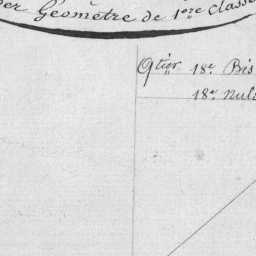 Géometre de 1.ere Classe
Qtier 18.e Bis
18.e nul